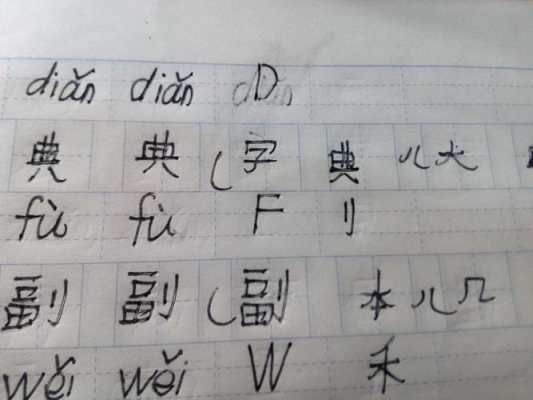 diǎn diǎn D
典 典 (字典 八大
fù fù F 刂
副 副 (副本 八几
wěi wěi W 禾